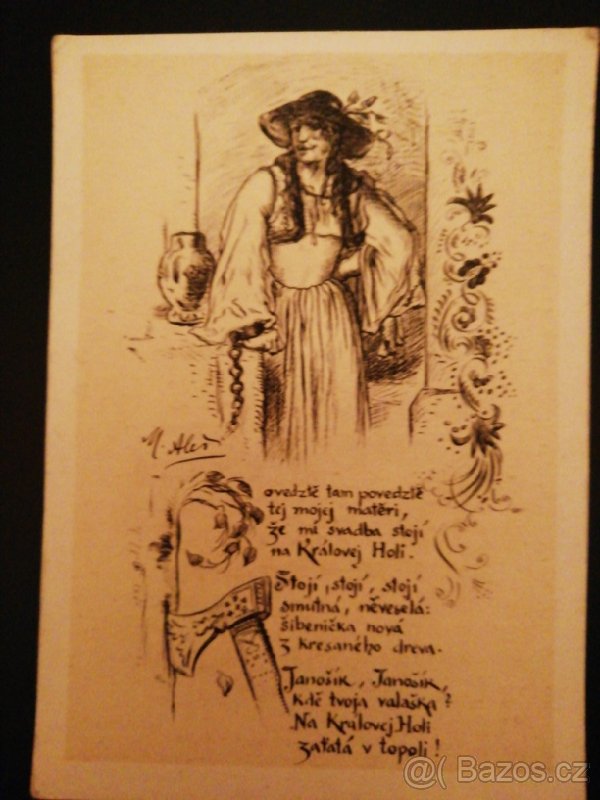 M. Aleš
Povedztě tam povedztě
tej mojej matěri,
že mi svadba stojí
na Královej Holi.
Stojí, stojí, stojí
smutná, něveselá:
šibenička nová
z kresaného dreva.
Janošík, Janošík,
kdě tvoja valaška?
Na Královej Holi
zaťatá v topoli!
@( Bazos.cz